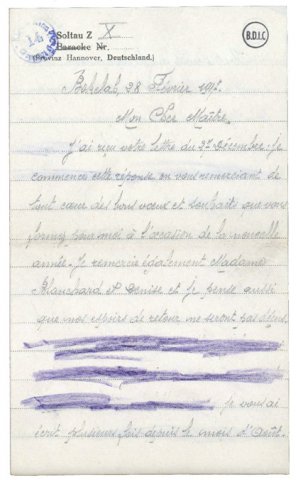 14
B.D.I.C
Soltau Z X
Baracke Nr.
(Provinz Hannover, Deutschland.)
28 Février 191
Mon Cher Maître,
J'ai reçu votre lettre du Décembre. Je
commence cette réponse en vous remerciant de
tout cœur des bons vœux et souhaits que vous
formez pour moi à l'occasion de la nouvelle
année. Je remercie également Madame
Blanchard et Denise et je pense aussi
que nos espoirs de retour ne seront pas déçus.
Je vous ai
écrit plusieurs fois depuis le mois d'Août.